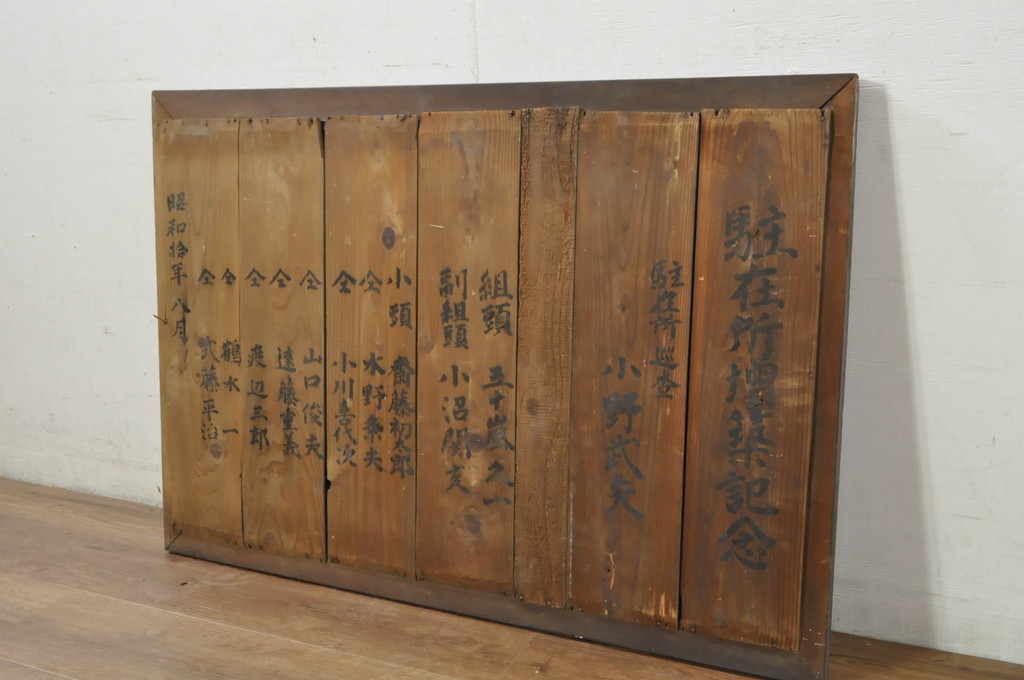 駐在所増築記念
駐在所巡査
小野武夫
組頭 五十嵐久一
副組頭 小沼関亥
小頭 齋藤初太郎
仝 水野条夫
仝 小川喜代次
仝 山口俊夫
仝 遠藤重義
仝 渡辺三郎
仝 鶴水一
仝 武藤平治
昭和拾年八月